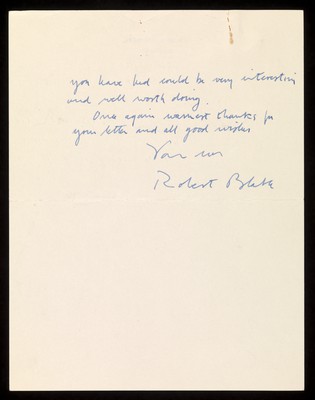 you have had could be very interesting
and well worth doing.
Once again warmest thanks for
your letter and all good wishes
Yours
Robert Blake